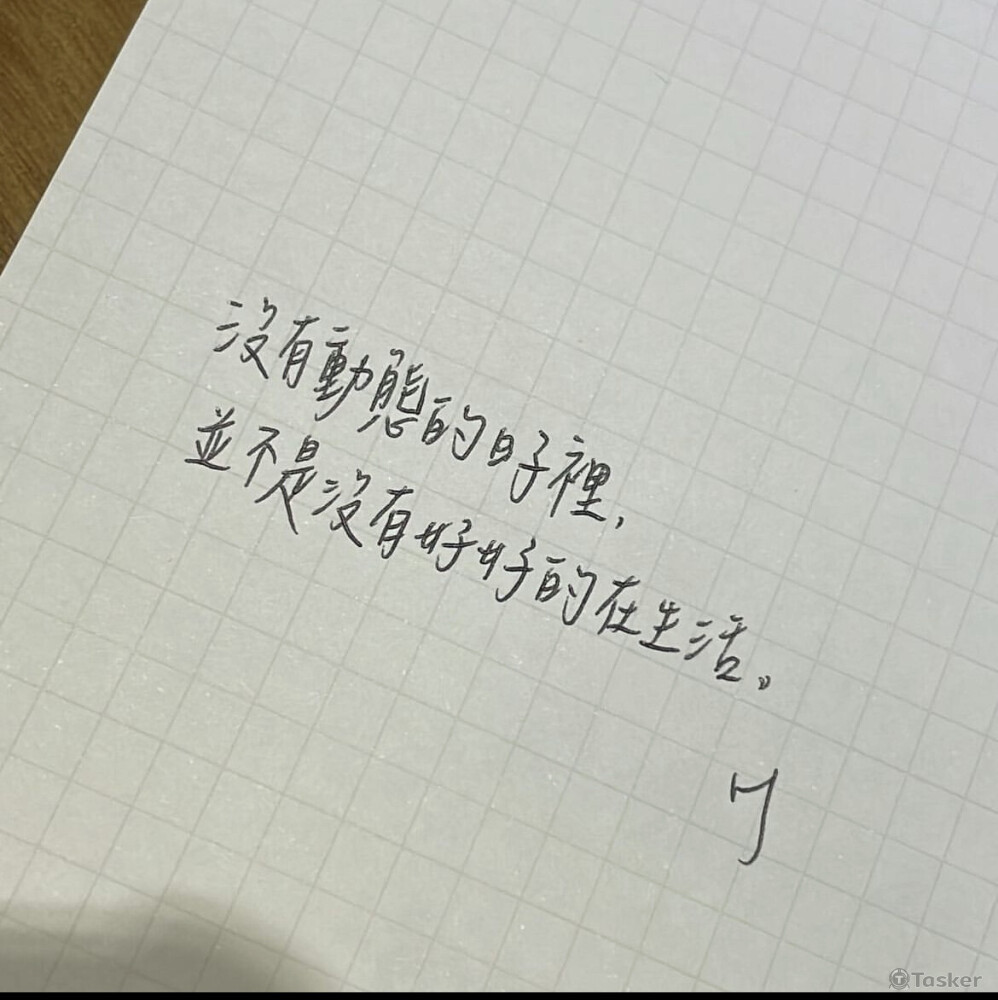 沒有動態的日子裡,
並不是沒有好好的在生活。
Tasker